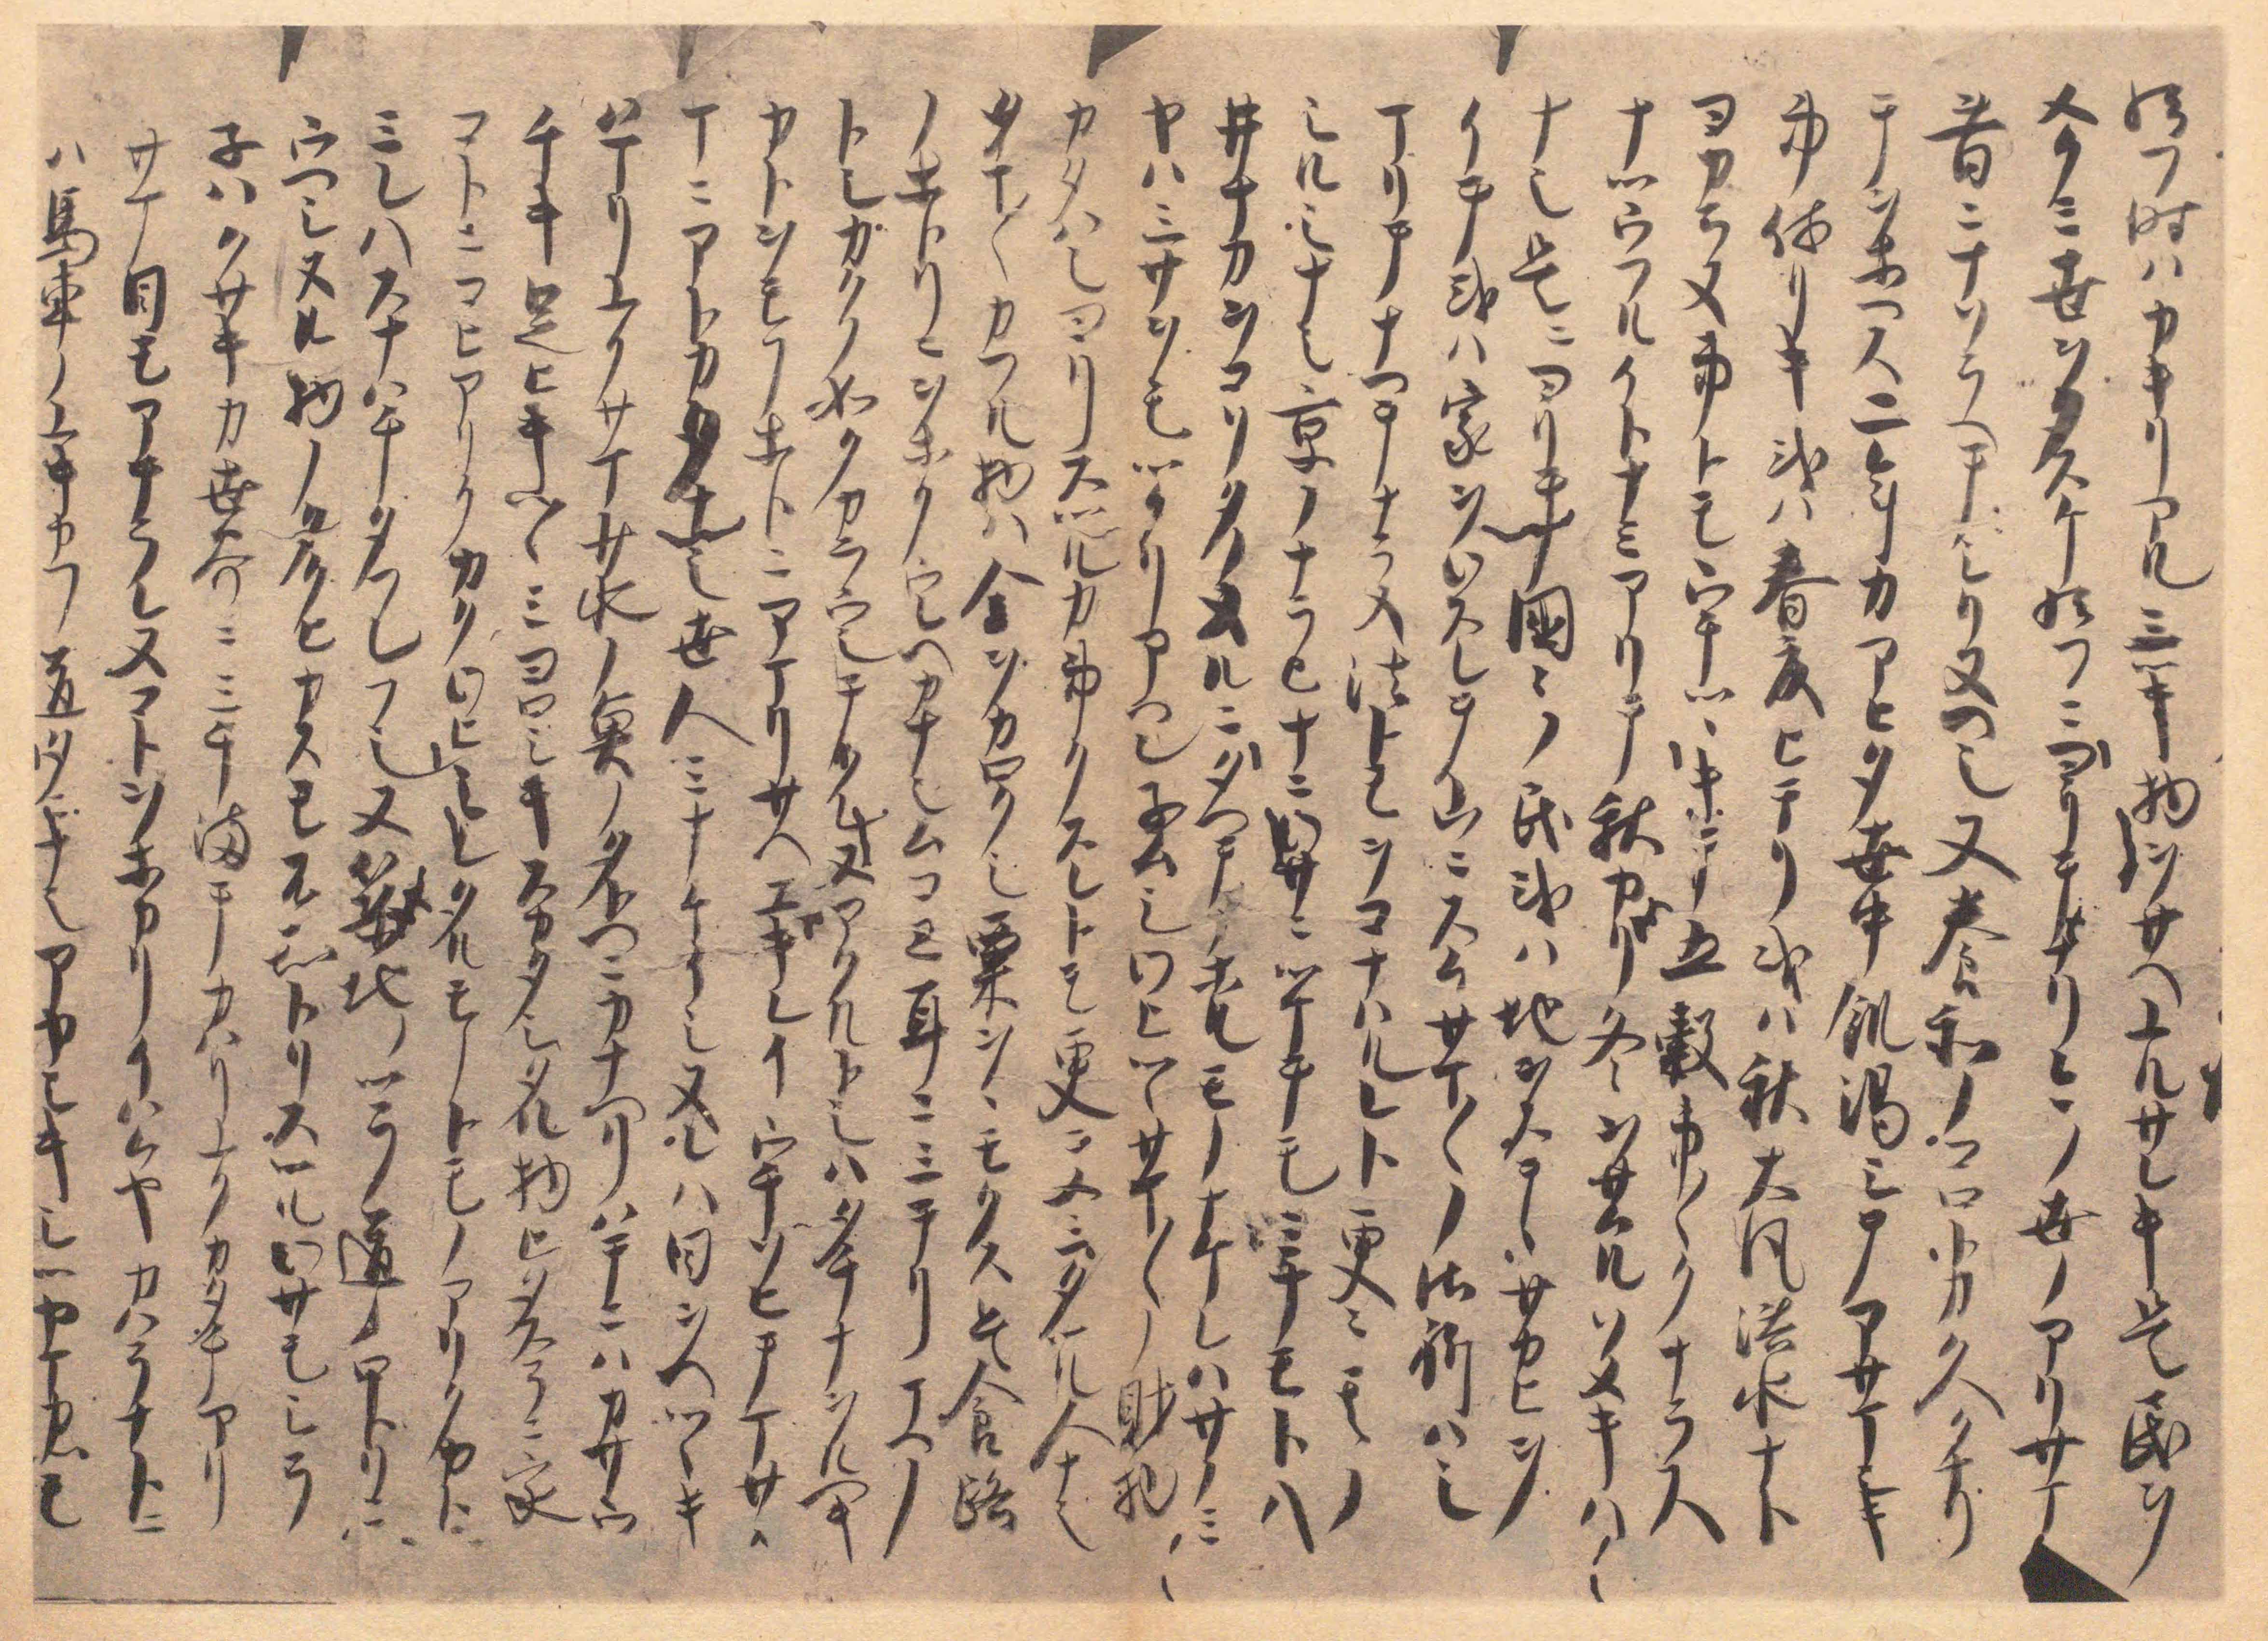 給フ時ハカキリアルミツキ物ヲサヘユルサレキ是民ヲ
メクミ世ヲタスケ給フニヨリテナリ今ノ世ノアリサマ
昔ニナソラヘテシリヌヘシ又養和ノコロトカ久クナリ
テヲホヘス二年カアヒタ世中飢渇シテアサマシキ
事侍リキ或ハ春夏ヒテリ或ハ秋大風洪水ナト
ヨカラヌ事トモウチツヽキテ五穀事〱クナラス
ナツウフルイトナミアリテ秋カリ冬ヲサムルソメキハ
ナシ是ニヨリテ國々ノ民或ハ地ヲステヽサカヒヲ
イテ或ハ家ヲワスレテ山ニスムサマ〱ノ御祈ハシ
マリテナヘテナラヌ法トモヲコナハルレト更ニ其ノ
シルシナシ京ノナラヒナニワサニツケテモミナモトハ
井ナカヲコソタノメルニタヘテノホルモノナケレハサノミ
ヤハミサヲモツクリアヘン念シワヒツヽサマ〱ノ財物
カタハシヨリスツルカ事クスレトモ更ニメミタツル人ナシ
タマ〱カフル物ハ金ヲカロクシ粟ヲヽモクス乞食路
ノホトリニヲホクウレヘカナシムコヱ耳ニミテリマヘノ
トシカクノ如クカラウシテクレヌアクルトシハタチナヲルヘキ
カトヲモフホトニアマリサヘエキレイウチソヒテマサヽ
マニアトカタナシ世人ミナケイシヌレハ日ヲヘツヽキ
ハマリユクサマ少水ノ魚ノタトヘニカナヘリハテニハカサウ
チキ足ヒキツヽミヨロシキスカタシタル物ヒタスラニ家
コトニコヒアリクカクワヒシレタルモノトモノアリクカト
ミレハスナハチタフレフシヌ築地ノツラ道ノホトリニ
ウヘシヌル物ノタクヒカスモ不知トリスツルワサモシラ
子ハクサキカ世界ニミチ満テカハリユクカタチアリ
サマ目モアテラレヌコトヲホカリイハムヤカハラナトニ
ハ馬車ノ行キカフ道タニナシアヤシキシツヤマカツモ